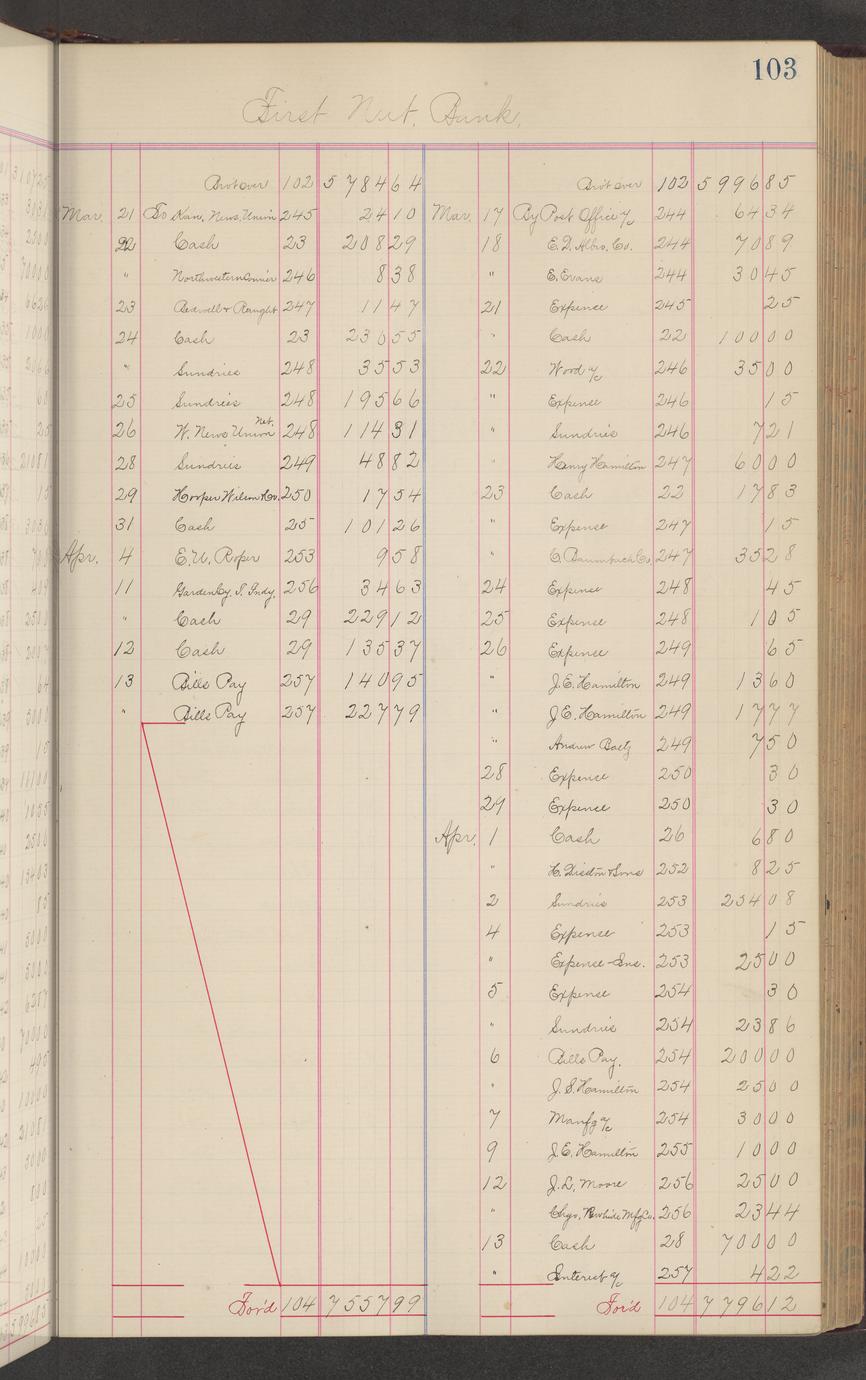 103
First Nat. Bank.
Bro't over 102 5 784 64
Mar. 21 To Kan. News. Union 245 24 10
22 Cash 23 208 29
" Northwestern 246 8 38
23 Bedwell & Raught 247 11 47
24 Cash 23 230 55
" Sundries 248 35 53
25 Sundries 248 195 66
26 W. News Union Net. 248 114 31
28 Sundries 249 48 82
29 Hooper Wilson & Co. 250 17 54
31 Cash 25 101 26
Apr. 4 E.U. Roper 253 9 58
11 Garden Cy. T. Fndy. 256 34 63
" Cash 29 229 12
12 Cash 29 135 37
13 Bills Pay 257 140 95
" Bills Pay 257 227 79
For'd 104 7 557 99
Bro't over 102 5 996 85
Mar. 17 By Post Office a/c 244 64 34
18 E.D. Albro. Co. 244 70 89
" E. Evans 244 30 45
21 Expense 245 25
" Cash 22 100 00
22 Wood a/c 246 35 00
" Expense 246 15
" Sundries 246 7 21
" Henry Hamilton 247 60 00
23 Cash 22 17 83
" Expense 247 15
" C. Baumbach Co. 247 35 28
24 Expense 248 45
25 Expense 248 1 05
26 Expense 249 65
" J.E. Hamilton 249 13 60
" J.E. Hamilton 249 17 77
" Andrew Baetz 249 7 50
28 Expense 250 30
29 Expense 250 30
Apr. 1 Cash 26 6 80
" H. Disston & Sons 252 8 25
2 Sundries 253 254 08
4 Expense 253 15
" Expense-Ins. 253 25 00
5 Expense 254 30
" Sundries 254 23 86
6 Bills Pay. 254 200 00
" J.S. Hamilton 254 25 00
7 Manfg a/c 254 30 00
9 J.E. Hamilton 255 10 00
12 J.L. Moore 256 25 00
" Chgo. Rawhide Mfg Co. 256 23 44
13 Cash 28 700 00
" Interest a/c 257 4 22
For'd 104 7 796 12